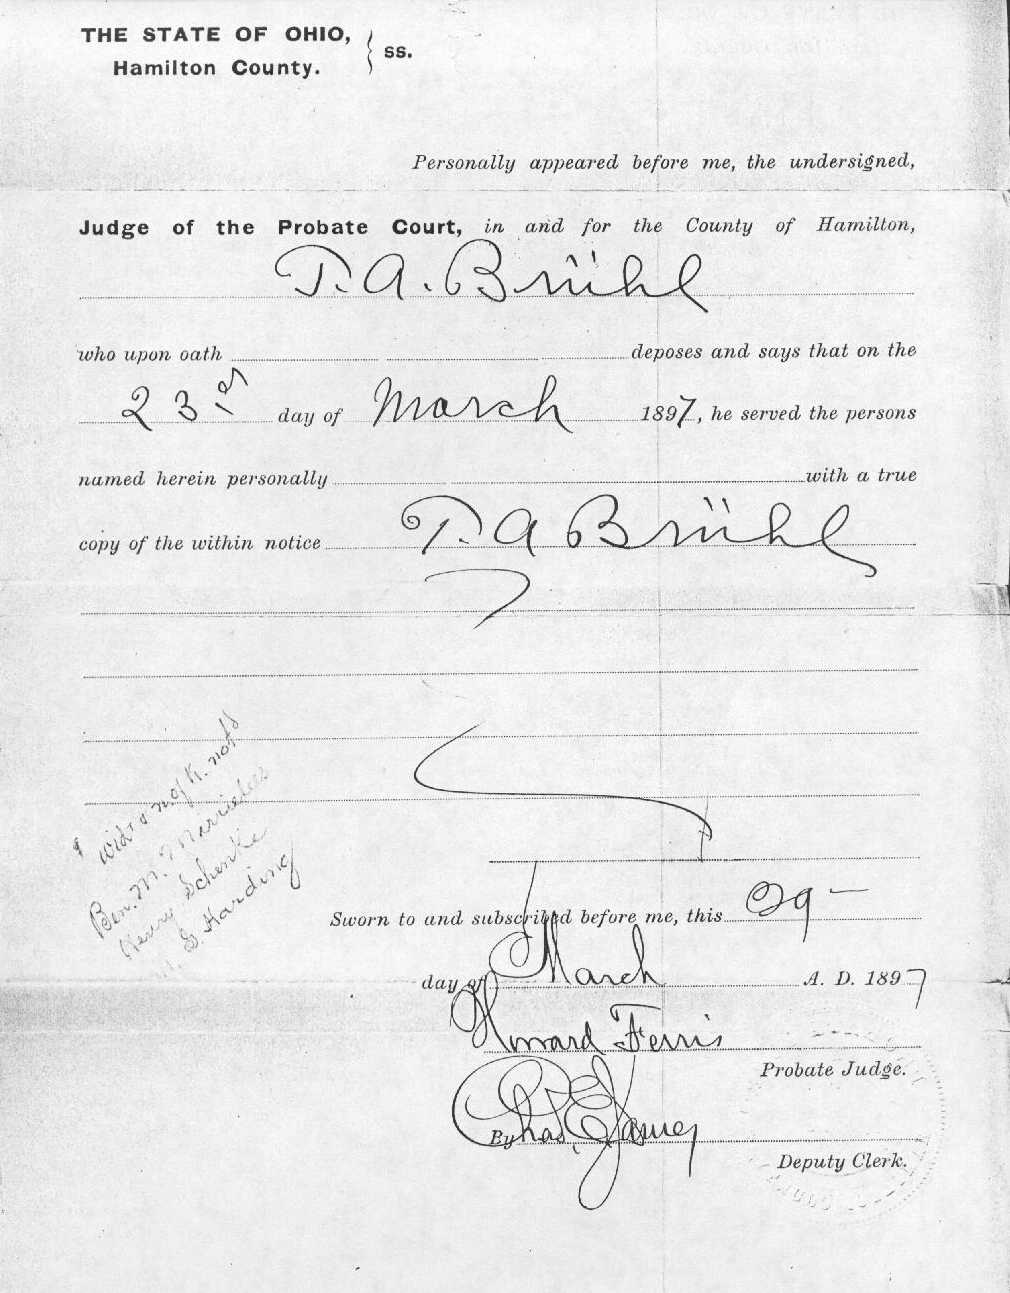 THE STATE OF OHIO,
Hamilton County. } ss.
Personally appeared before me, the undersigned,
Judge of the Probate Court, in and for the County of Hamilton,
T. A. Brühl
who upon oath deposes and says that on the
23 day of March 1897, he served the persons
named herein personally with a true
copy of the within notice T. A Brühl
Ben. M.
Henry Schenke
G. Harding
Sworn to and subscribed before me, this 29
day of March A. D. 1897
Howard Ferris
Probate Judge.
By Chas. E.
Deputy Clerk.